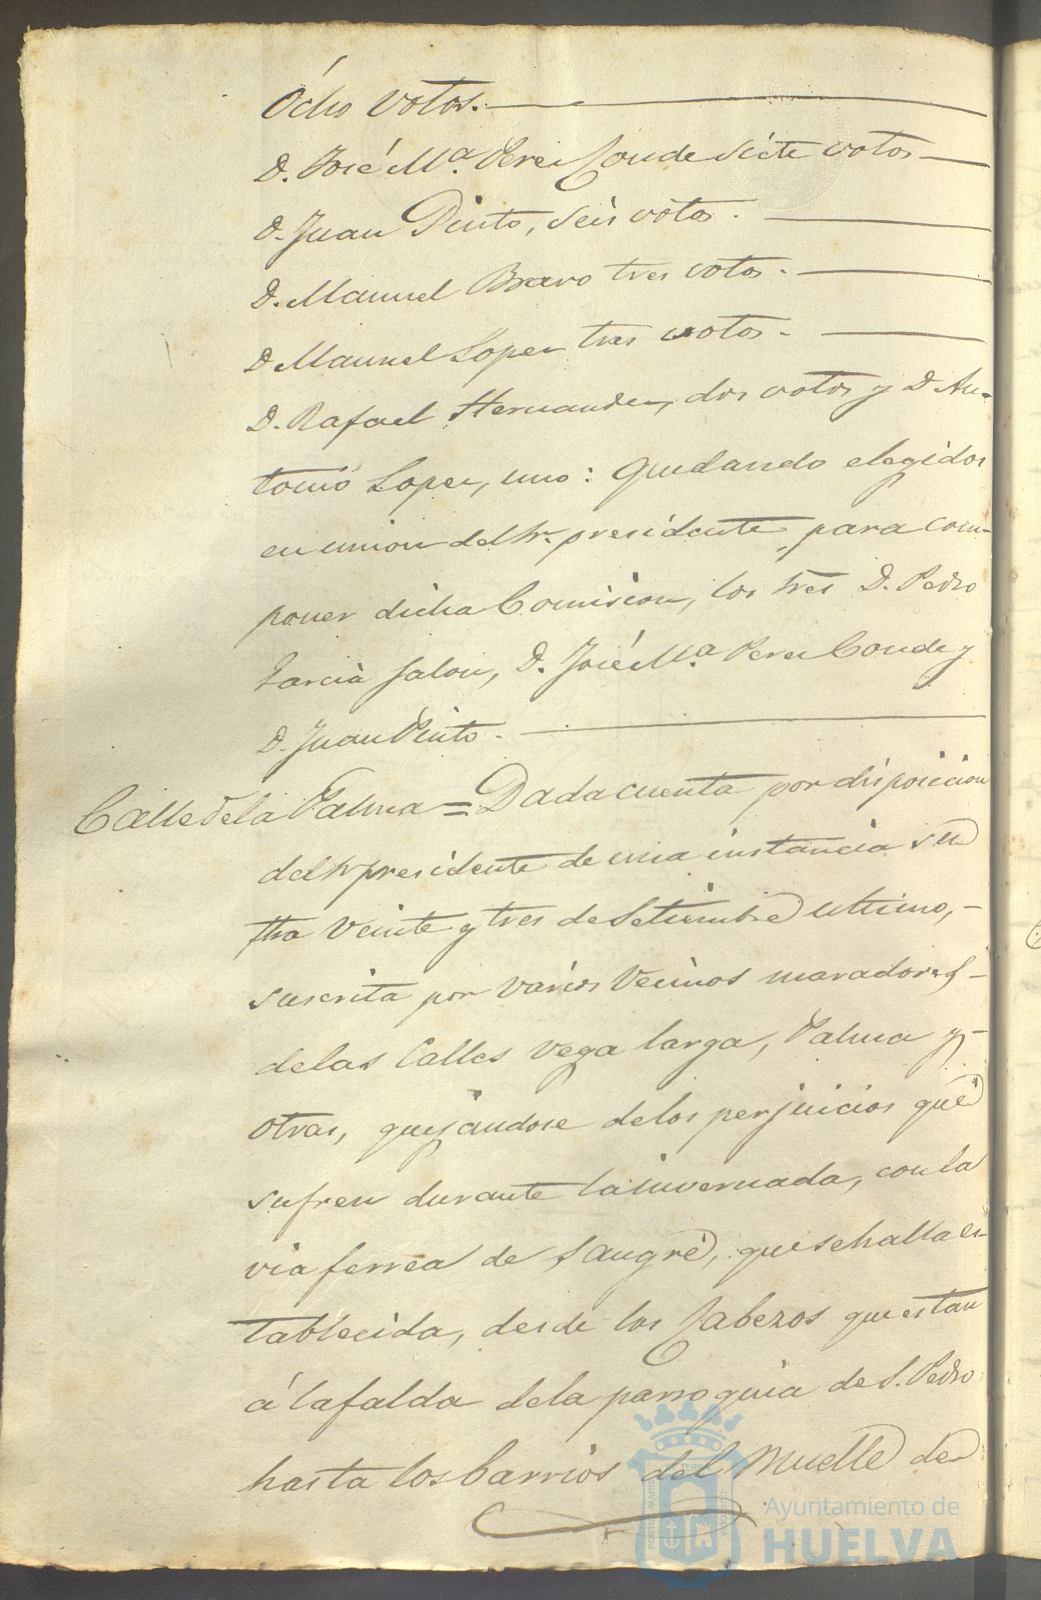 Ócho votos.
D. José Mª. Perez Conde siete votos
D. Juan Pinto, seis votos.
D. Manuel Bravo tres votos.
D Manuel Lopez tres votos.
D. Rafael Hernandez, dos votos y D An-
tonio Lopez, uno: quedando elegidos
en union del Sr. presidente para com-
poner dicha Comision, los tres D. Pedro
Garcia Jalon, D. José Mª Perez Conde y
D. Juan Pinto.
Calle de la Palma = Dada cuenta por disposicion
del Sr presidente de una instancia su
fha veinte y tres de Setiembre ultimo,
suscrita por varios vecinos moradores
de las Calles Vega larga, Palma y
otras, quejandose de los perjuicios que
sufren durante la invernada, con la
via ferrea de Sangre, que se halla es-
tablecida, desde los Cabezos que estan
á la falda de la parroquia de S. Pedro
hasta los barrios del Muelle de
Ayuntamiento de
HUELVA